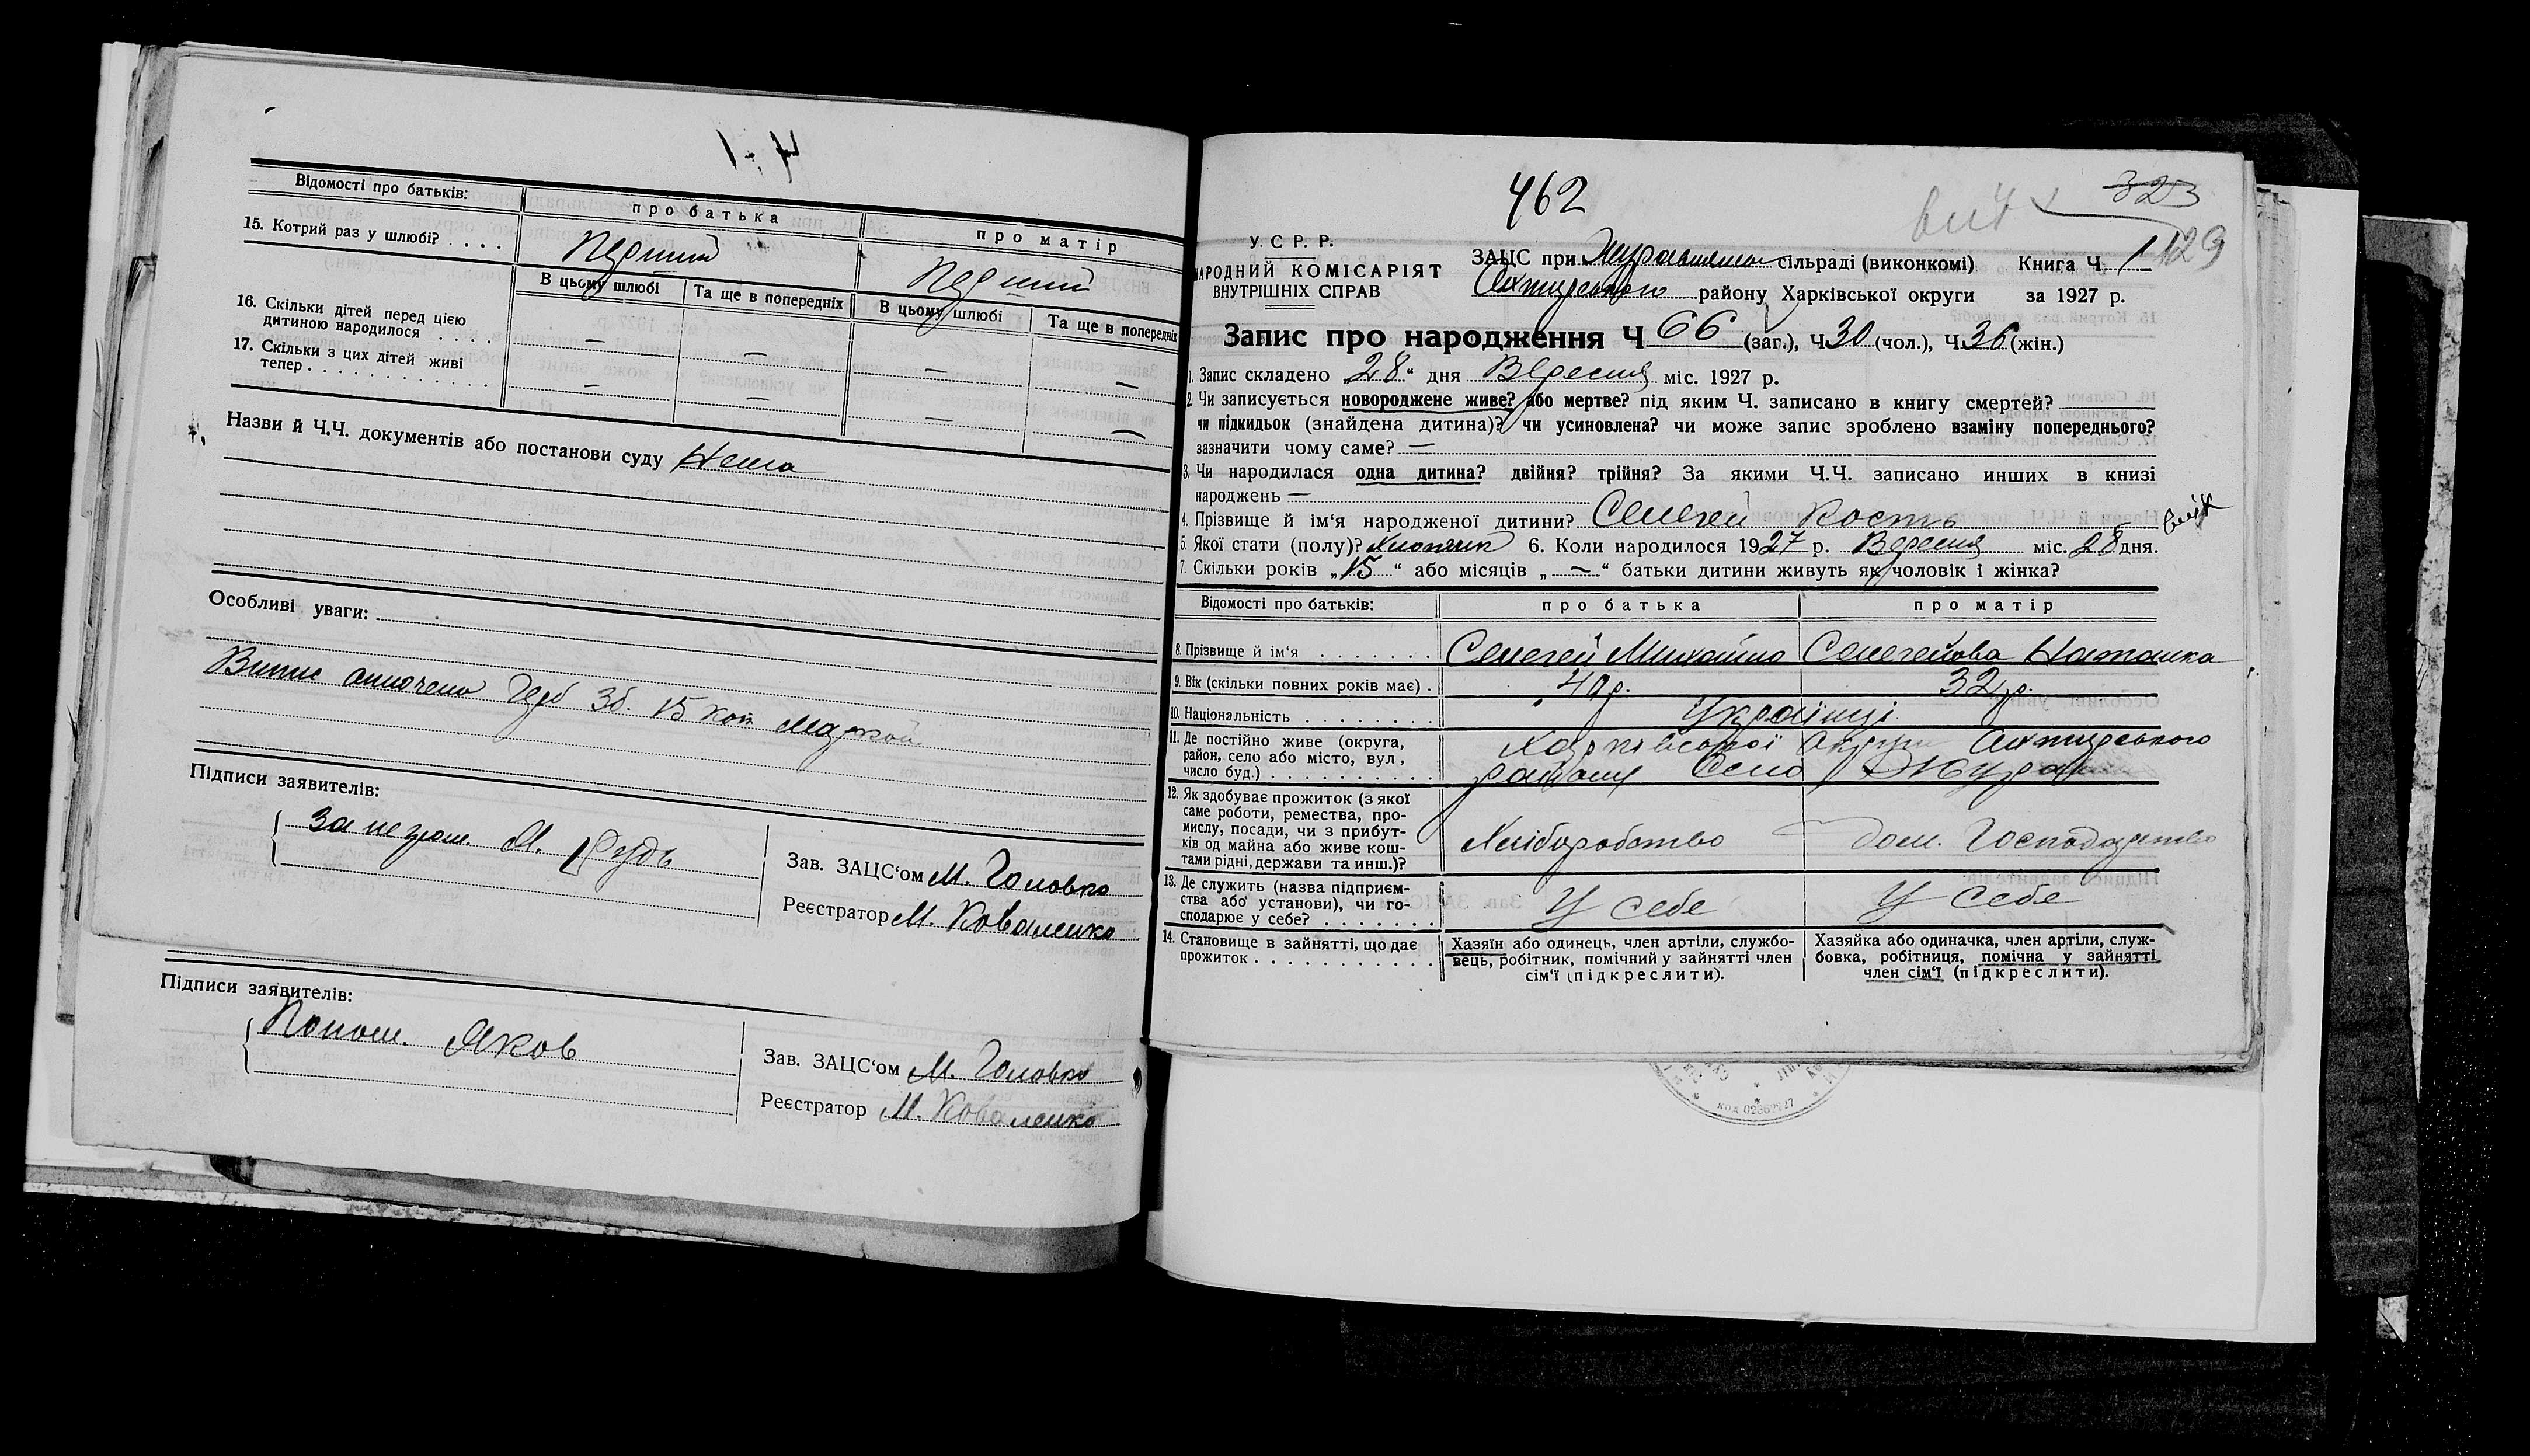 Відомості про батьків: про батька про матір
15. Котрий раз у шлюбі? . . . . Перший Перший
В цьому шлюбі Та ще в попередніх В цьому шлюбі Та ще в попередніх
16. Скільки дітей перед цією
дитиною народилося . . . . — — — —
17. Скільки з цих дітей живі
тепер . . . . . . . . . . . . — — — —
Назви й Ч.Ч. документів або постанови суду Нема
Особливі уваги:
Випис оплочено Герб Зб. 15 коп маркой
Підписи заявителів:
За неграм. М. Рудь
Зав. ЗАЦС'ом М. Головко
Реєстратор М. Коваленко
Підписи заявителів:
Яков
Зав. ЗАЦС'ом М. Головко
Реєстратор М. Коваленко
462
323
129
У. С Р. Р.
НАРОДНИЙ КОМІСАРІЯТ
ВНУТРІШНІХ СПРАВ
ЗАЦС при сільраді (виконкомі) Книга Ч. 1
Охтирського району Харківської округи за 1927 р.
Запис про народження Ч 66 (заг.), Ч 30 (чол.), Ч 36 (жін.)
1. Запис складено „28" дня Вересня міс. 1927 р.
2. Чи записується новороджене живе? або мертве? під яким Ч. записано в книгу смертей?
чи підкидьок (знайдена дитина)? чи усиновлена? чи може запис зроблено взаміну попереднього?
зазначити чому саме? —
3. Чи народилася одна дитина? двійня? трійня? За якими Ч.Ч. записано инших в книзі
народжень —
4. Прізвище й ім'я народженої дитини? Селегей Кость
5. Якої стати (полу)? Хлопчик 6. Коли народилося 1927 р. Вересня міс. 28 дня.
7. Скільки років „15" або місяців „—" батьки дитини живуть як чоловік і жінка?
Відомості про батьків: про батька про матір
8. Прізвище й ім'я . . . . . . . Селегей Михайло Селегейова Наталка
9. Вік (скільки повних років має) . 40 р. 32 р.
10. Національність . . . . . . . . Українці
11. Де постійно живе (округа, Харківської Округи Охтирського
район, село або місто, вул, району Село
число буд.) . . . . . . . . . .
12. Як здобуває прожиток (з якої
саме роботи, ремества, про-
мислу, посади, чи з прибут- Хліборобство дом. Господарство
ків од майна або живе кош-
тами рідні, держави та инш.)?
13. Де служить (назва підприєм-
ства або установи), чи го- У себе У себе
сподарює у себе? . . . . . .
14. Становище в зайнятті, що дає Хазяїн або одинець, член артіли, службо- Хазяйка або одиначка, член артіли, служ-
прожиток . . . . . . . . . . . вець, робітник, помічний у зайнятті член бовка, робітниця, помічна у зайнятті
сім'ї (підкреслити). член сім'ї (підкреслити).